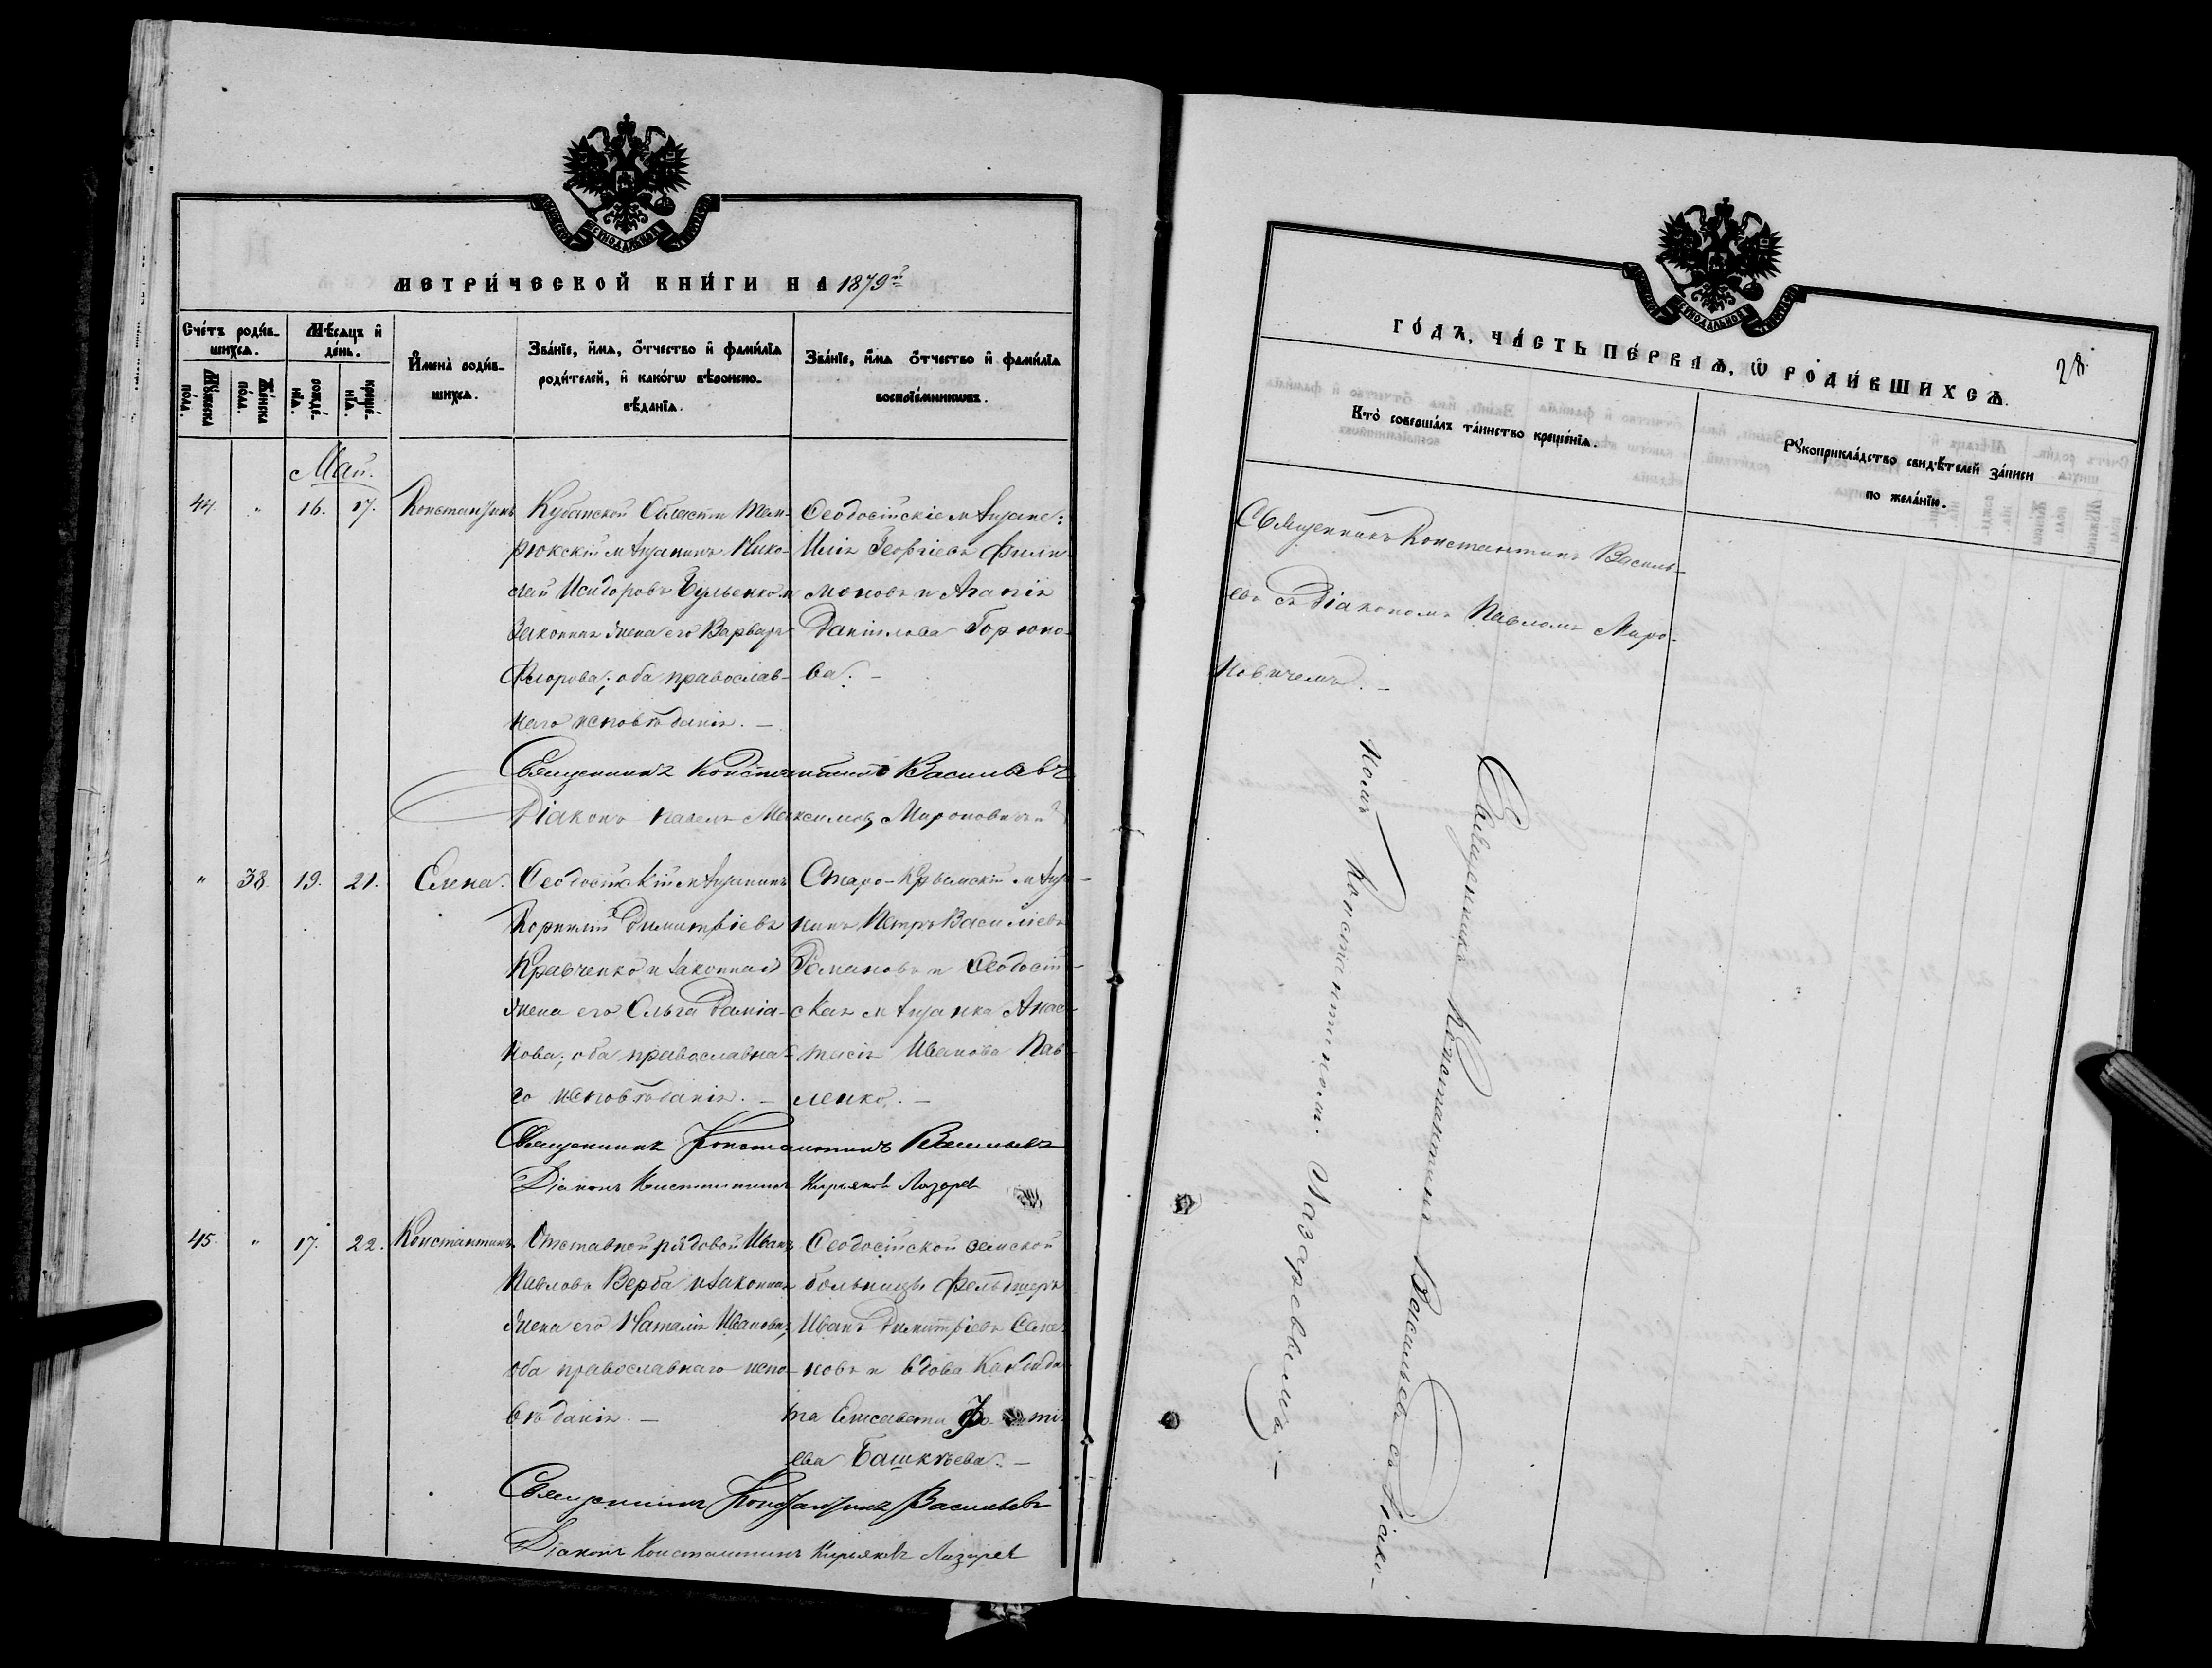 МЕТРИ́ЧЕСКОЙ КНИ́ГИ НА 1879й
Сче́тъ роди́в-
шихсѧ.
Мѣ́сѧцъ и҆
де́нь.
И҆мена̀ роди́в-
шихсѧ.
Зва́нїе, и҆́мѧ, ѻ҆́тчество и҆ фами́лїѧ
роди́телей, и҆ како́гѡ вѣроиспо-
вѣ́данїѧ.
Зва́нїе, и҆́мѧ ѻ҆́тчество и҆ фами́лїѧ
воспрїе́мникѡвъ.
Мꙋ́жеска
по́ла.
Же́нска
по́ла.
рожде́-
нїѧ.
креще́-
нїѧ.
Май.
44. " 16. 17. Константинъ
Кубанской Области Тем-
рюкскій мѣщанинъ Нико-
лай Исидоровъ Бульенко и
законная жена его Варвара
Ѳедорова; оба православ-
наго исповѣданія. —
Ѳеодосійскіе мѣщане:
Илія Георгіевъ Фили-
моновъ и Агапія
Даніилова Горюно-
ва. —
Священникъ Константинъ Васильевъ
Діаконъ Павелъ Максимов Мироновичъ
" 38. 19. 21. Елена.
Ѳеодосійскій мѣщанинъ
Корнилій Димитріевъ
Кравченко и законная
жена его Ольга Даміа-
нова; оба православна-
го исповѣданія. —
Старо-Крымскій мѣща-
нинъ Петръ Василіевъ
Романовъ и Ѳеодосій-
ская мѣщанка Анас-
тасія Иванова Пав-
ленко. —
Священникъ Константинъ Васильевъ
Діаконъ Константинъ Кирьяковъ Лазарев
45. " 17. 22. Константинъ
Отставной рядовой Иванъ
Павловъ Верба и законная
жена его Наталія Иванова;
оба православнаго испо-
вѣданія. —
Ѳеодосійской земской
больницы фельдшеръ
Иванъ Димитріевъ Семе-
новъ и вдова
Елисавета
ева Башкѣева. —
Священникъ Константинъ Васильевъ
Діаконъ Константинъ Кирьяковъ Лазарев
28.
ГО́ДЪ, ЧА́СТЬ ПЕ́РВАѦ, Ѡ҆ РОДИ́ВШИХСѦ.
Кто̀ соверша́лъ та́инство креще́нїѧ.
Рꙋкоприкла́дство свидѣ́телей за́писи
по жела́нїю.
Священникъ Константинъ Василь-
евъ съ Діакономъ Павломъ Миро-
новичемъ. —
Священникъ Константинъ Васильевъ съ Діако-
номъ Константиномъ Лазаревымъ. —